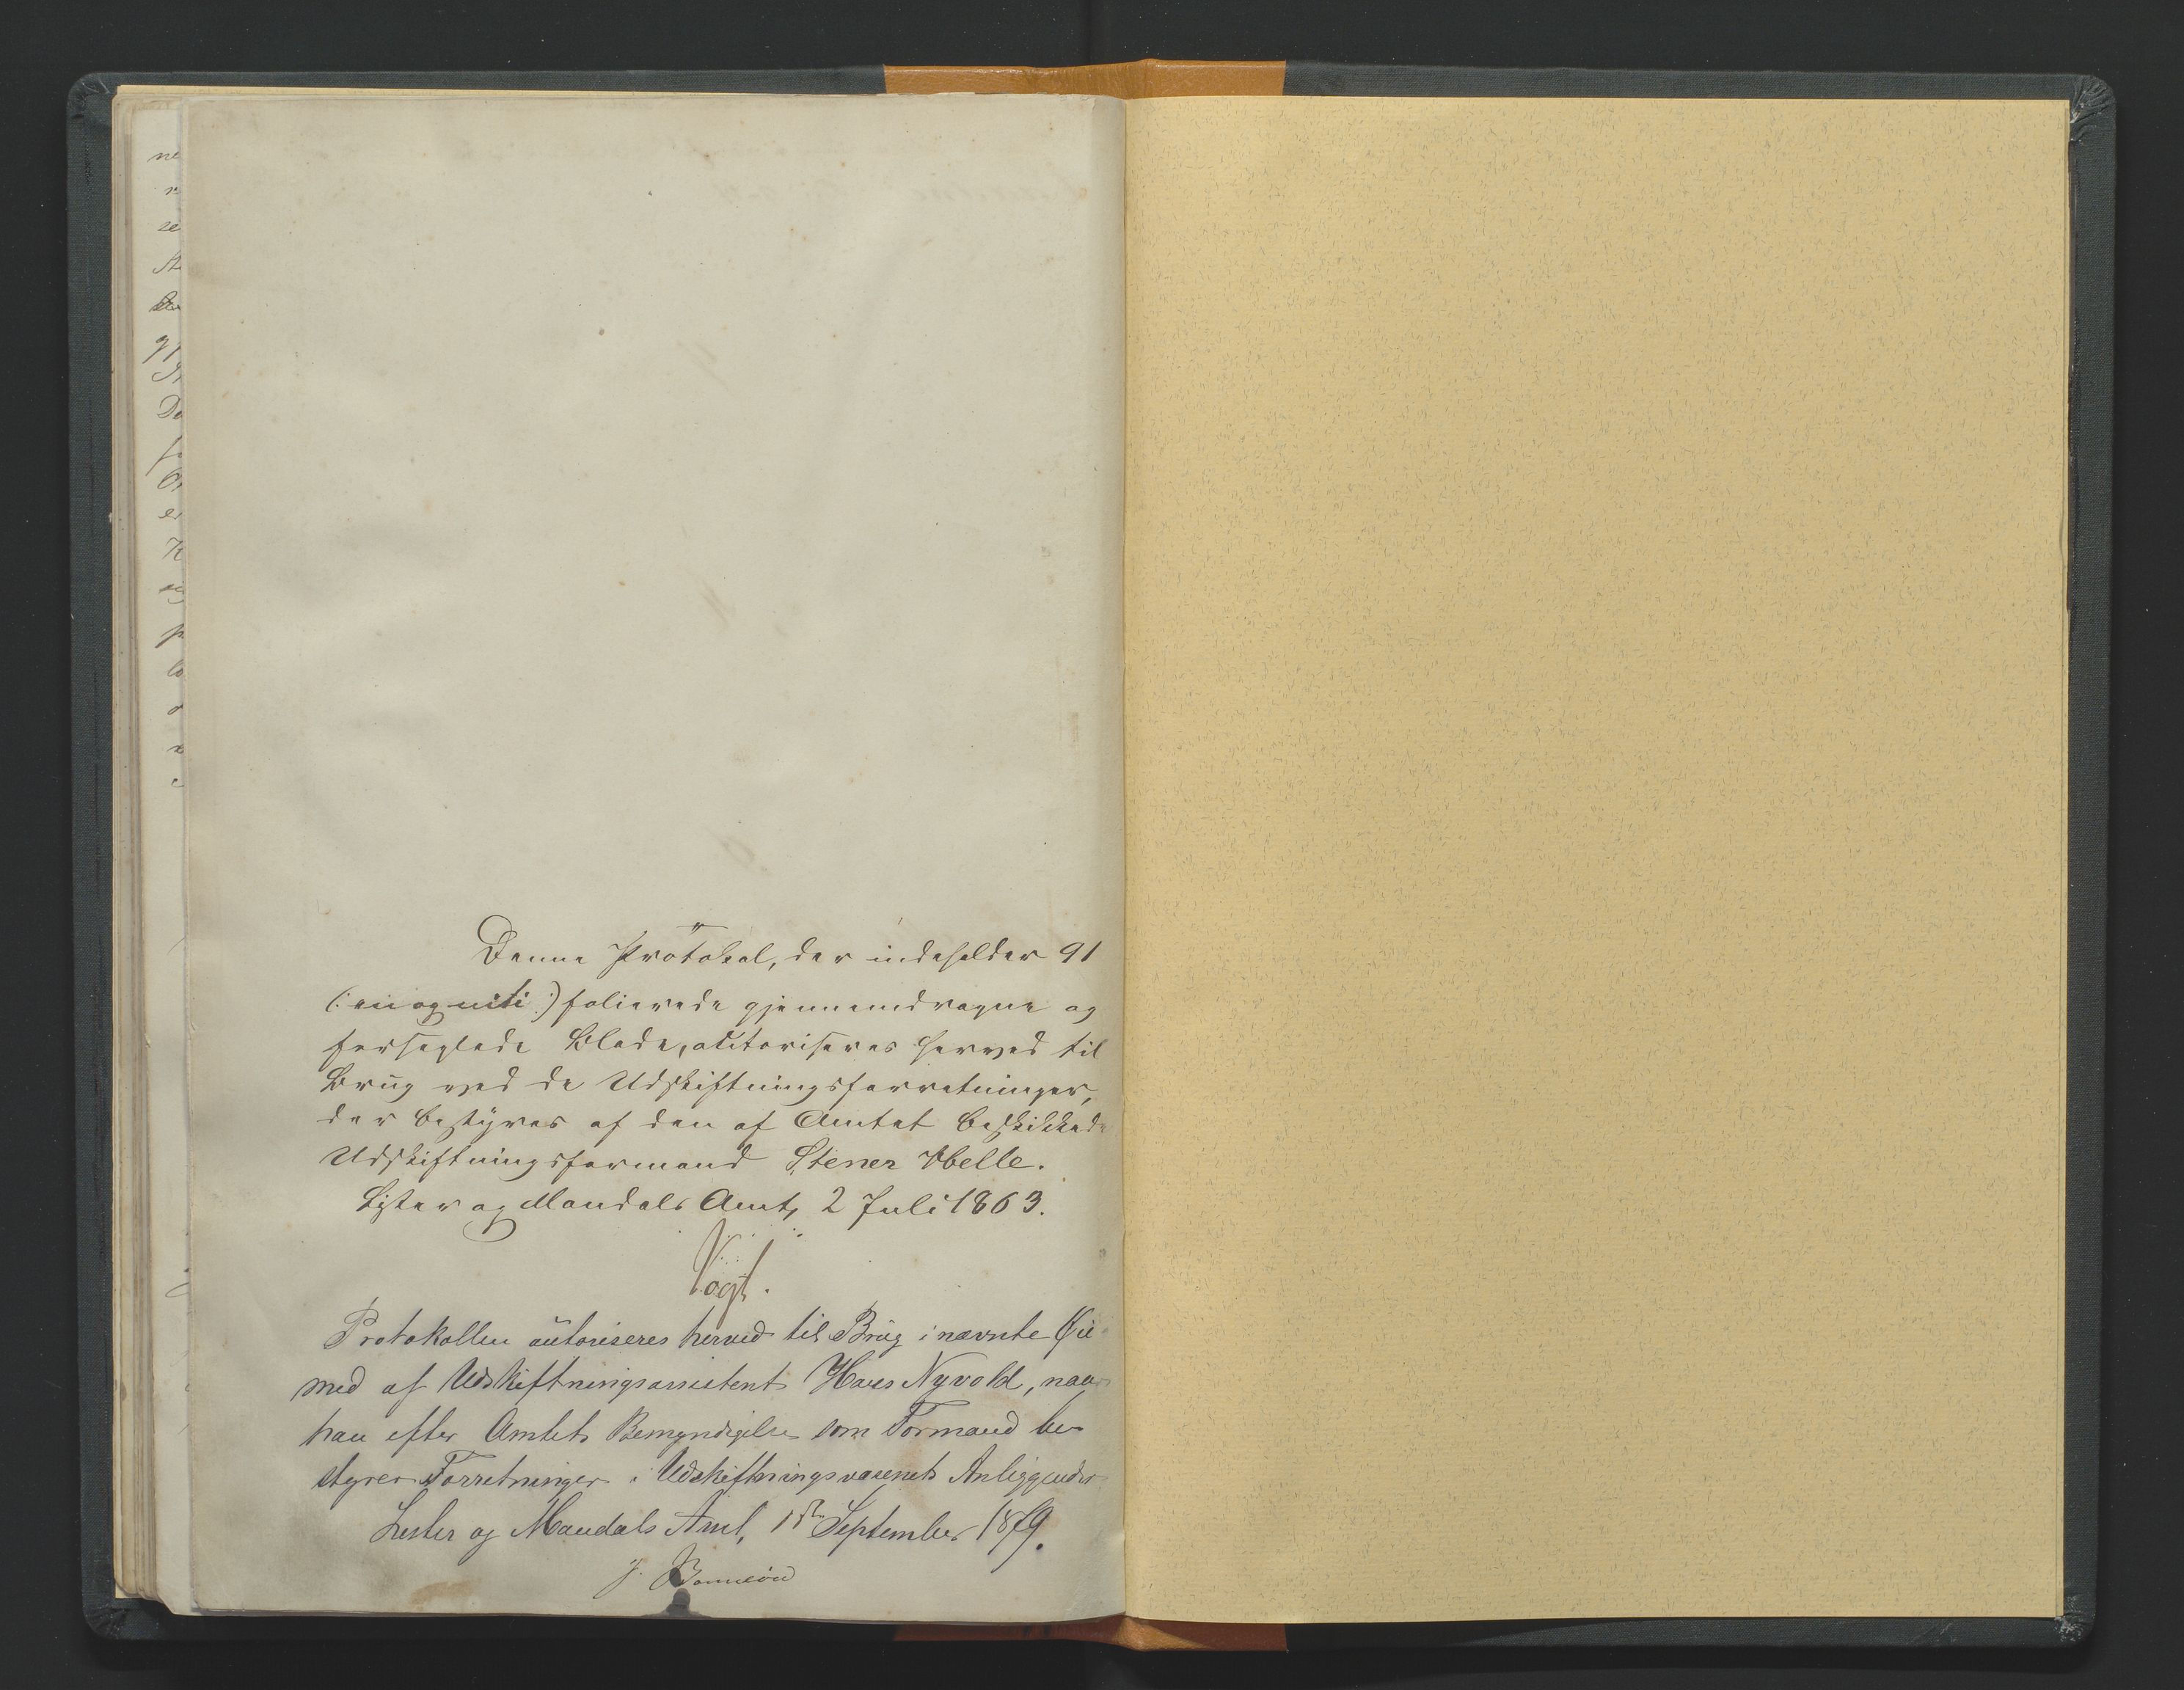 Denne Protokol, der indeholder 91
(: en og niti :) folierede gjennemdragne og
forseglede Blade, autoriseres herved til
Brug ved de Udskiftningsforretninger,
der bestyres af den af Amtet beskikkede
Udskiftningsformand Stener Helle.
Lister og Mandals Amt, 2 Juli 1863.
Vogt.
Protokollen autoriseres herved til Brug i nævnte Øie
med af Udskiftningsassistent Hans Nyvold, naar
han efter Amtets Bemyndigelse som Formand be
styrer Forretninger i Udskiftningsvæsenets Anliggender
Lister og Mandals Amt, September 1879.
J.